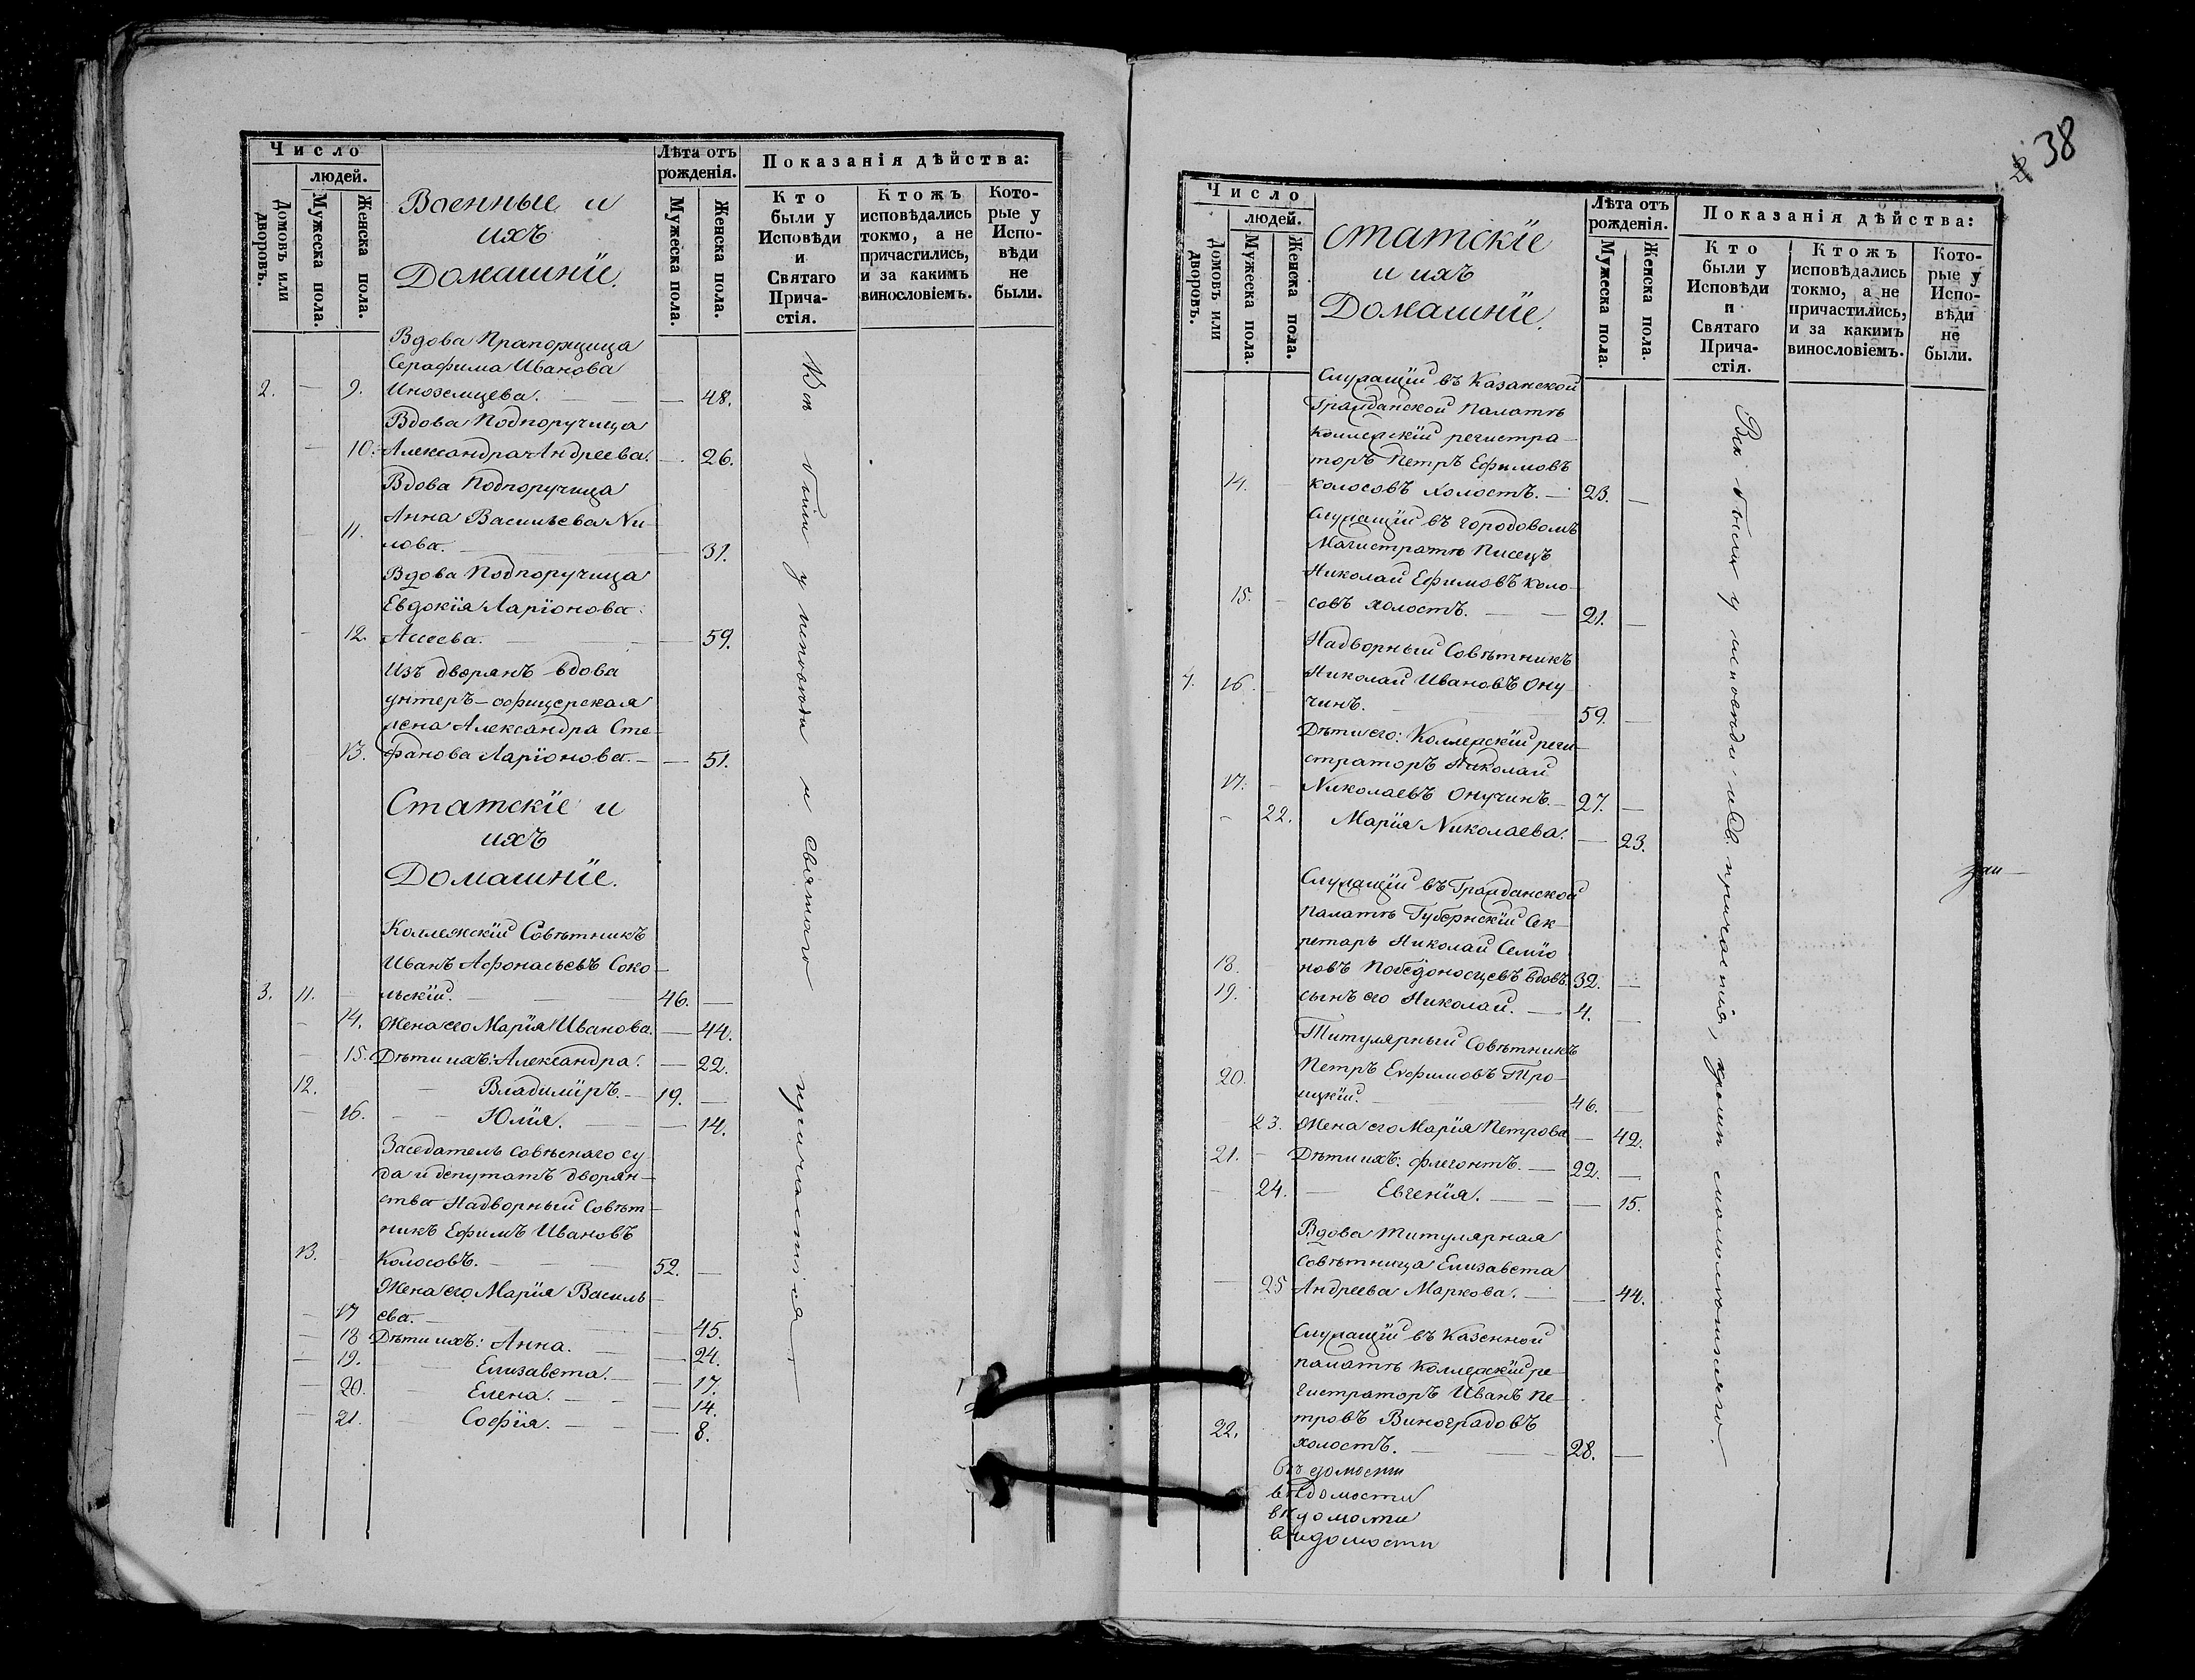 Число
людей.
Домовъ или дворовъ.
Мужеска пола.
Женска пола.
Военные и
ихъ
Домашніе.
Лѣта отъ
рожденія.
Мужеска пола.
Женска пола.
Показанія дѣйства:
Кто
были у
Исповѣди
и
Святаго
Прича-
стія.
Ктожъ
исповѣдались
токмо, а не
причастились,
и за какимъ
винословіемъ.
Кото-
рые у
Испо-
вѣди
не
были.
Вдова Прапорщица
Серафима Иванова
2. — 9. Иноземцева. — — — 48.
Вдова Подпоручица
— 10. Александра Андреева. — 26.
Вдова Подпоручица
Анна Васильева Ни-
— 11. лова. — — 31.
Вдова Подпоручица
Евдокія Ларіонова
— 12. Асеева. — — — 59.
Изъ дворянъ вдова
унтеръ-офицерская
жена Александра Сте-
— 13. фанова Ларіонова. — — 51.
Статскіе и
ихъ
Домашніе.
Коллежскій Совѣтникъ
Иванъ Афонасьевъ Соко-
3. 11. — льскій. — — 46. —
— 14. Жена его Марія Иванова. — 44.
— 15. Дѣти ихъ: Александра. — 22.
12. — Владиміръ. — 19. —
— 16. — — Юлія. — — 14.
Заседатель совѣснаго су-
да и депутатъ дворян-
ства Надворный Совѣт-
никъ Ефимъ Ивановъ
13. — Колосовъ. — — 52. —
Жена его Марія Василь-
— 17 ева. — — 45.
— 18 Дѣти ихъ: Анна. — — 24.
— 19. — Елизавета. — — 17.
— 20. — Елена. — — 14.
— 21. — Софія. — — 8.
Всѣ были у исповѣди и святаго причастія —
38
Число
людей.
Домовъ или дворовъ.
Мужеска пола.
Женска пола.
статскіе
и ихъ
Домашніе.
Лѣта отъ
рожденія.
Мужеска пола.
Женска пола.
Показанія дѣйства:
Кто
были у
Исповѣди
и
Святаго
Прича-
стія.
Ктожъ
исповѣдались
токмо, а не
причастились,
и за какимъ
винословіемъ.
Кото-
рые у
Испо-
вѣди
не
были.
Служащій въ Казанской
Гражданской Палатѣ
Коллежскій регистра-
торъ Петръ Ефимовъ
14. — колосовъ холостъ. — 23. —
Служащій въ городовомъ
Магистратѣ Писецъ
Николай Ефимовъ Коло-
15. — совъ холостъ. — — 21. —
Надворный Совѣтникъ
4. 16. — Николай Ивановъ Ону-
чинъ. — 59. —
Дѣти его: Коллежскій реги-
страторъ Николай
17. — Николаевъ Онучинъ. — 27. —
— 22. Марія Николаева. — 23.
Служащій въ Гражданской
палатѣ Губернскій Сек-
ретарь Николай Семіо-
18. — новъ Победоносцевъ вдовъ. 32. —
19. сынъ его Николай. — 4. —
Титулярный Совѣтникъ
Петръ Евфимовъ Тро-
20. ицкій. — 46. —
23. Жена его Марія Петрова — 42.
21. — Дѣти ихъ: Флегонтъ. — 22. —
— 24. — Евгенія. — — 15.
Вдова Титулярная
Совѣтница Елизавета
— 25 Андреева Маркова. — — 44.
Служащій въ Казенной
палатѣ коллежскій ре-
гистраторъ Иванъ Пе-
тровъ Виноградовъ
22. холостъ. — — 28. —
Всѣ были у исповѣди и Св. причастія, кромѣ смомилѣтняго.
вѣдомости
вѣдомости
вѣдомости
вѣдомости